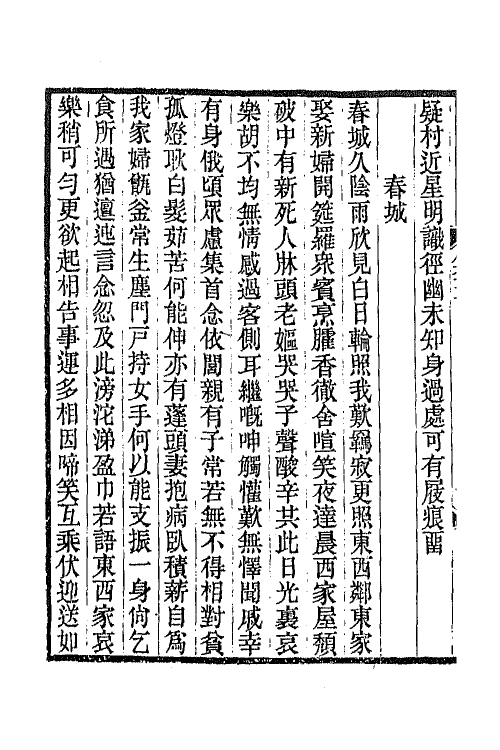 疑村近星明識徑幽未知身過處可有屐痕畱
春城
春城久陰雨欣見白日輪照我歎羇寂更照東西鄰東家
娶新婦開筵羅衆賓烹臛香徹舍喧笑夜達晨西家屋頹
破中有新死人牀頭老嫗哭哭子聲酸辛共此日光裏哀
樂胡不均無情感過客側耳繼嘅呻觸懽歎無懌聞戚幸
有身俄頃眾慮集首念依閭親有子常若無不得相對貧
孤燈耿白髮茹苦何能伸亦有蓬頭妻抱病臥積薪自爲
我家婦甑釜常生塵門戸持女手何以能支振一身尙乞
食所遇猶邅迍言念忽及此滂沱涕盈巾若語東西家哀
樂稍可勻更欲起相告事運多相因啼笑互乘伏迎送如